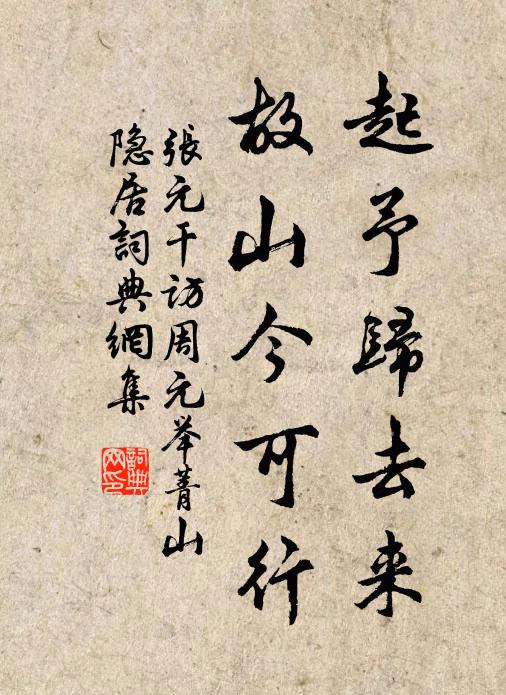 起予歸去来
故山今可行
張元干访周元举菁山
隐居詞典網集
詞典网印